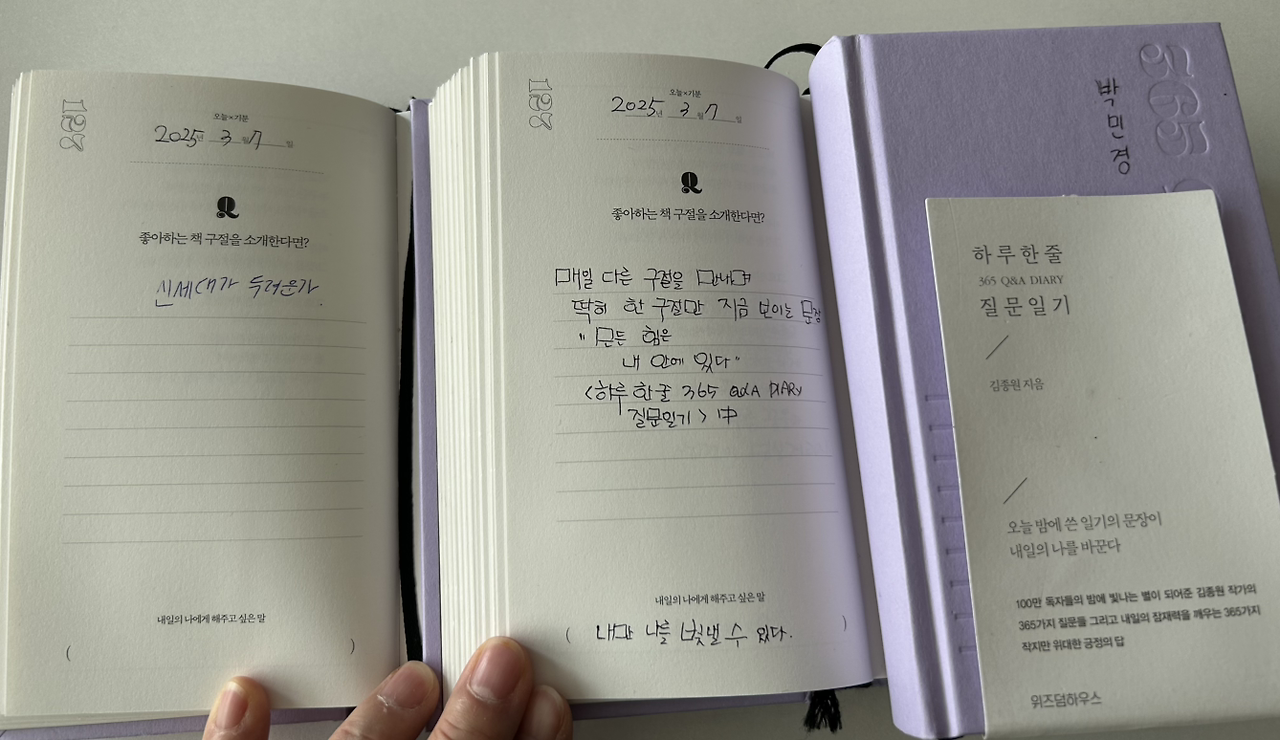 127
오늘×기분
2025년 3월 7일
Q
좋아하는 책 구절을 소개한다면?
신세대가 두려운가.
내일의 나에게 해주고 싶은 말
( )
127
오늘×기분
2025년 3월 7일
Q
좋아하는 책 구절을 소개한다면?
매일 다른 구절을 만나며
딱히 한 구절만 지금 보이는 문장
"모든 힘은
내 안에 있다"
<하루 한 줄 365 Q&A DIARY
질문일기> 中
내일의 나에게 해주고 싶은 말
( 내가 나를 빛낼 수 있다. )
365
박민경
하루 한 줄
365 Q&A DIARY
질문일기
김종원 지음
오늘 밤에 쓴 일기의 문장이
내일의 나를 바꾼다
100만 독자들의 밤에 빛나는 별이 되어준 김종원 작가의
365가지 질문들 그리고 내일의 잠재력을 깨우는 365가지
작지만 위대한 긍정의 답
위즈덤하우스